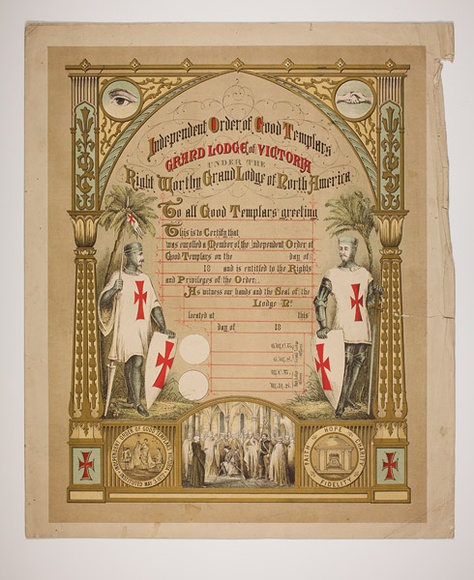 Independent Order of Good Templars
GRAND LODGE of VICTORIA
UNDER THE
Right Worthy Grand Lodge of North America
To all Good Templars greeting
This is to Certify that
was enrolled a Member of the Independent Order of
Good Templars on the day of
18 and is entitled to the Rights
and Privileges of the Order.
As witness our hands and the Seal of the
Lodge No
located at this
day of 18
INDEPENDENT ORDER OF GOOD TEMPLARS
FAITH HOPE CHARITY
FIDELITY